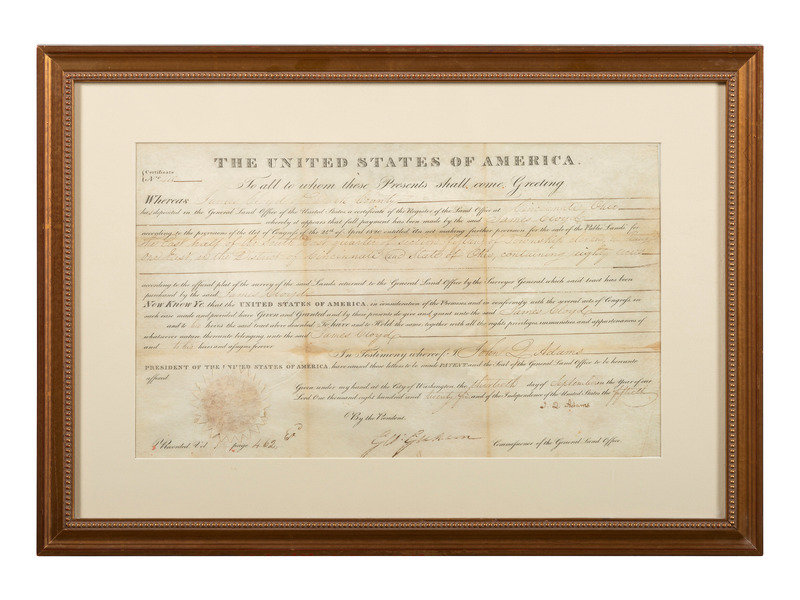 THE UNITED STATES OF AMERICA.
(Certificate
(No.
To all to whom these Presents shall come, Greeting
Whereas James Cloyd
has deposited in the General Land Office of the United States a certificate of the Register of the Land Office at Cincinnati Ohio
whereby it appears that full payment has been made by the said James Cloyd
according to the provision of the Act of Congress of the 24th of April 1820, entitled An act making further provision for the sale of the Public Lands for
the East half of the quarter of Section of Township eleven of Range
one East in the District of Cincinnati and State of Ohio, containing eighty acres
according to the official plat of the survey of the said Lands returned to the General Land Office by the Surveyor General which said tract has been
purchased by the said James Cloyd
Now Know Ye that the UNITED STATES OF AMERICA, in consideration of the Premises and in conformity with the several acts of Congress in
such case made and provided have Given and Granted and by these presents do give and grant unto the said James Cloyd
and to his heirs the said tract above described To have and to Hold the same together with all the rights privileges immunities and appurtenances of
whatsoever nature thereunto belonging unto the said James Cloyd
and to his heirs and assigns forever
In Testimony whereof I John Q Adams
PRESIDENT OF THE UNITED STATES OF AMERICA, have caused these letters to be made PATENT and the Seal of the General Land Office to be hereunto
affixed
Given under my hand at the City of Washington the day of September in the Year of our
Lord One thousand eight hundred and twenty five and of the Independence of the United States the fiftieth
J. Q. Adams
By the President.
Commissioner of the General Land Office.
Recorded Vol page 462